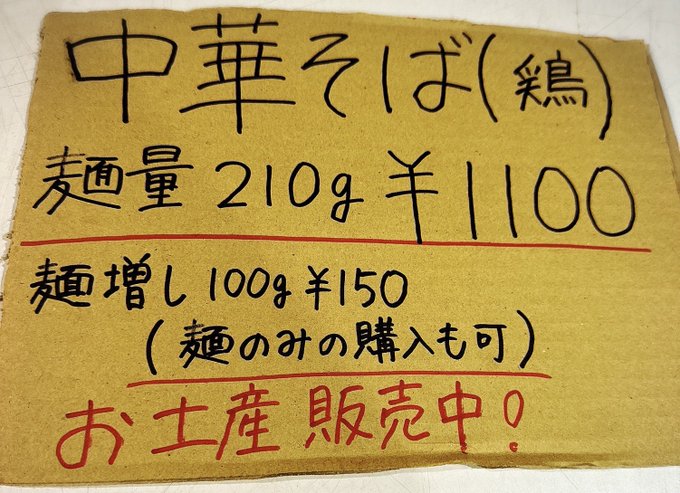 中華そば(鶏)
麺量 210g ¥1100
麺増し 100g ¥150
(麺のみの購入も可)
お土産 販売中!